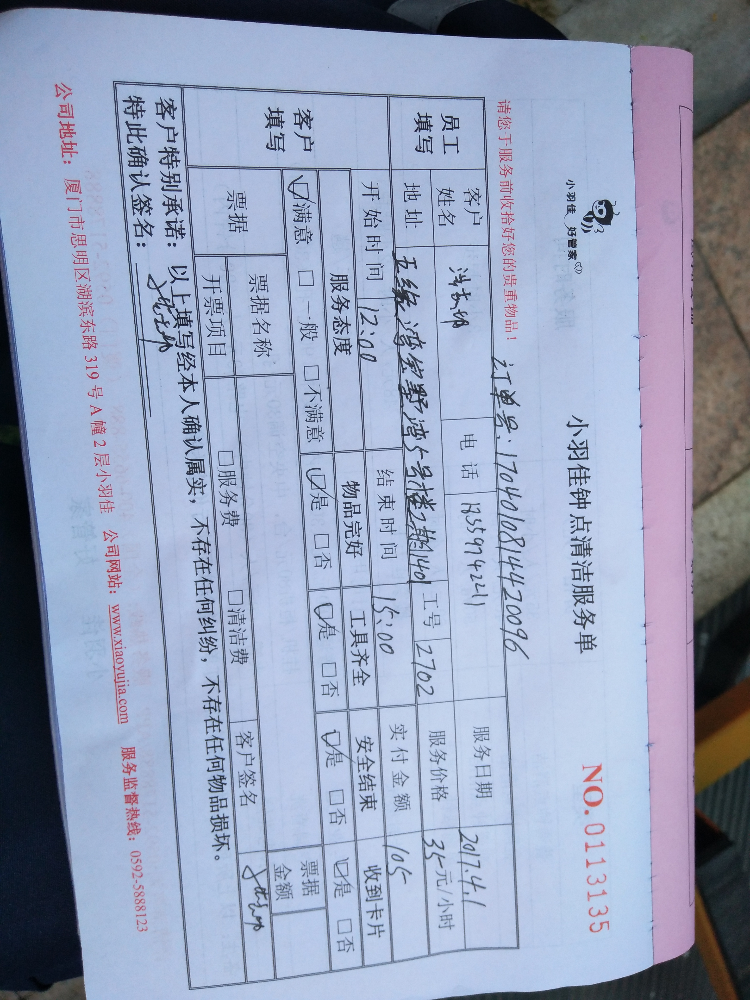 小羽佳 好管家
小羽佳钟点清洁服务单
NO.0113135
请您于服务前收拾好您的贵重物品！
订单号：17040108144420096
员工填写 客户姓名 电话 服务日期 2017.4.1
地址 工号 2702 服务价格 35元/小时
开始时间 12:00 结束时间 15:00 实付金额 105
客户填写 服务态度 物品完好 工具齐全 安全结束 收到卡片
☑满意 □一般 □不满意 ☑是 □否 ☑是 □否 ☑是 □否 ☑是 □否
票据 票据名称 票据金额
开票项目 □服务费 □清洁费 客户签名
客户特别承诺：以上填写经本人确认属实，不存在任何纠纷，不存在任何物品损坏。
特此确认签名：
公司地址：厦门市思明区湖滨东路319号A幢2层小羽佳 公司网站：www.xiaoyujia.com 服务监督热线：0592-5888123